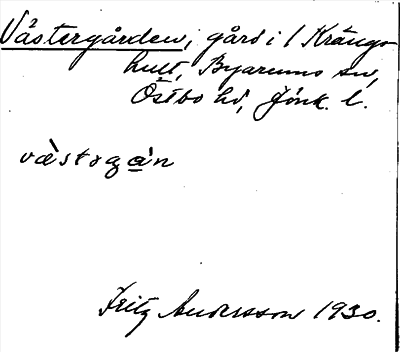 Västergården, gård i 1 Krängs-
hult, Byarums sn,
Östbo hd, Jönk. l.
væ̀stəgá̱n
Fritz Andersson 1930.